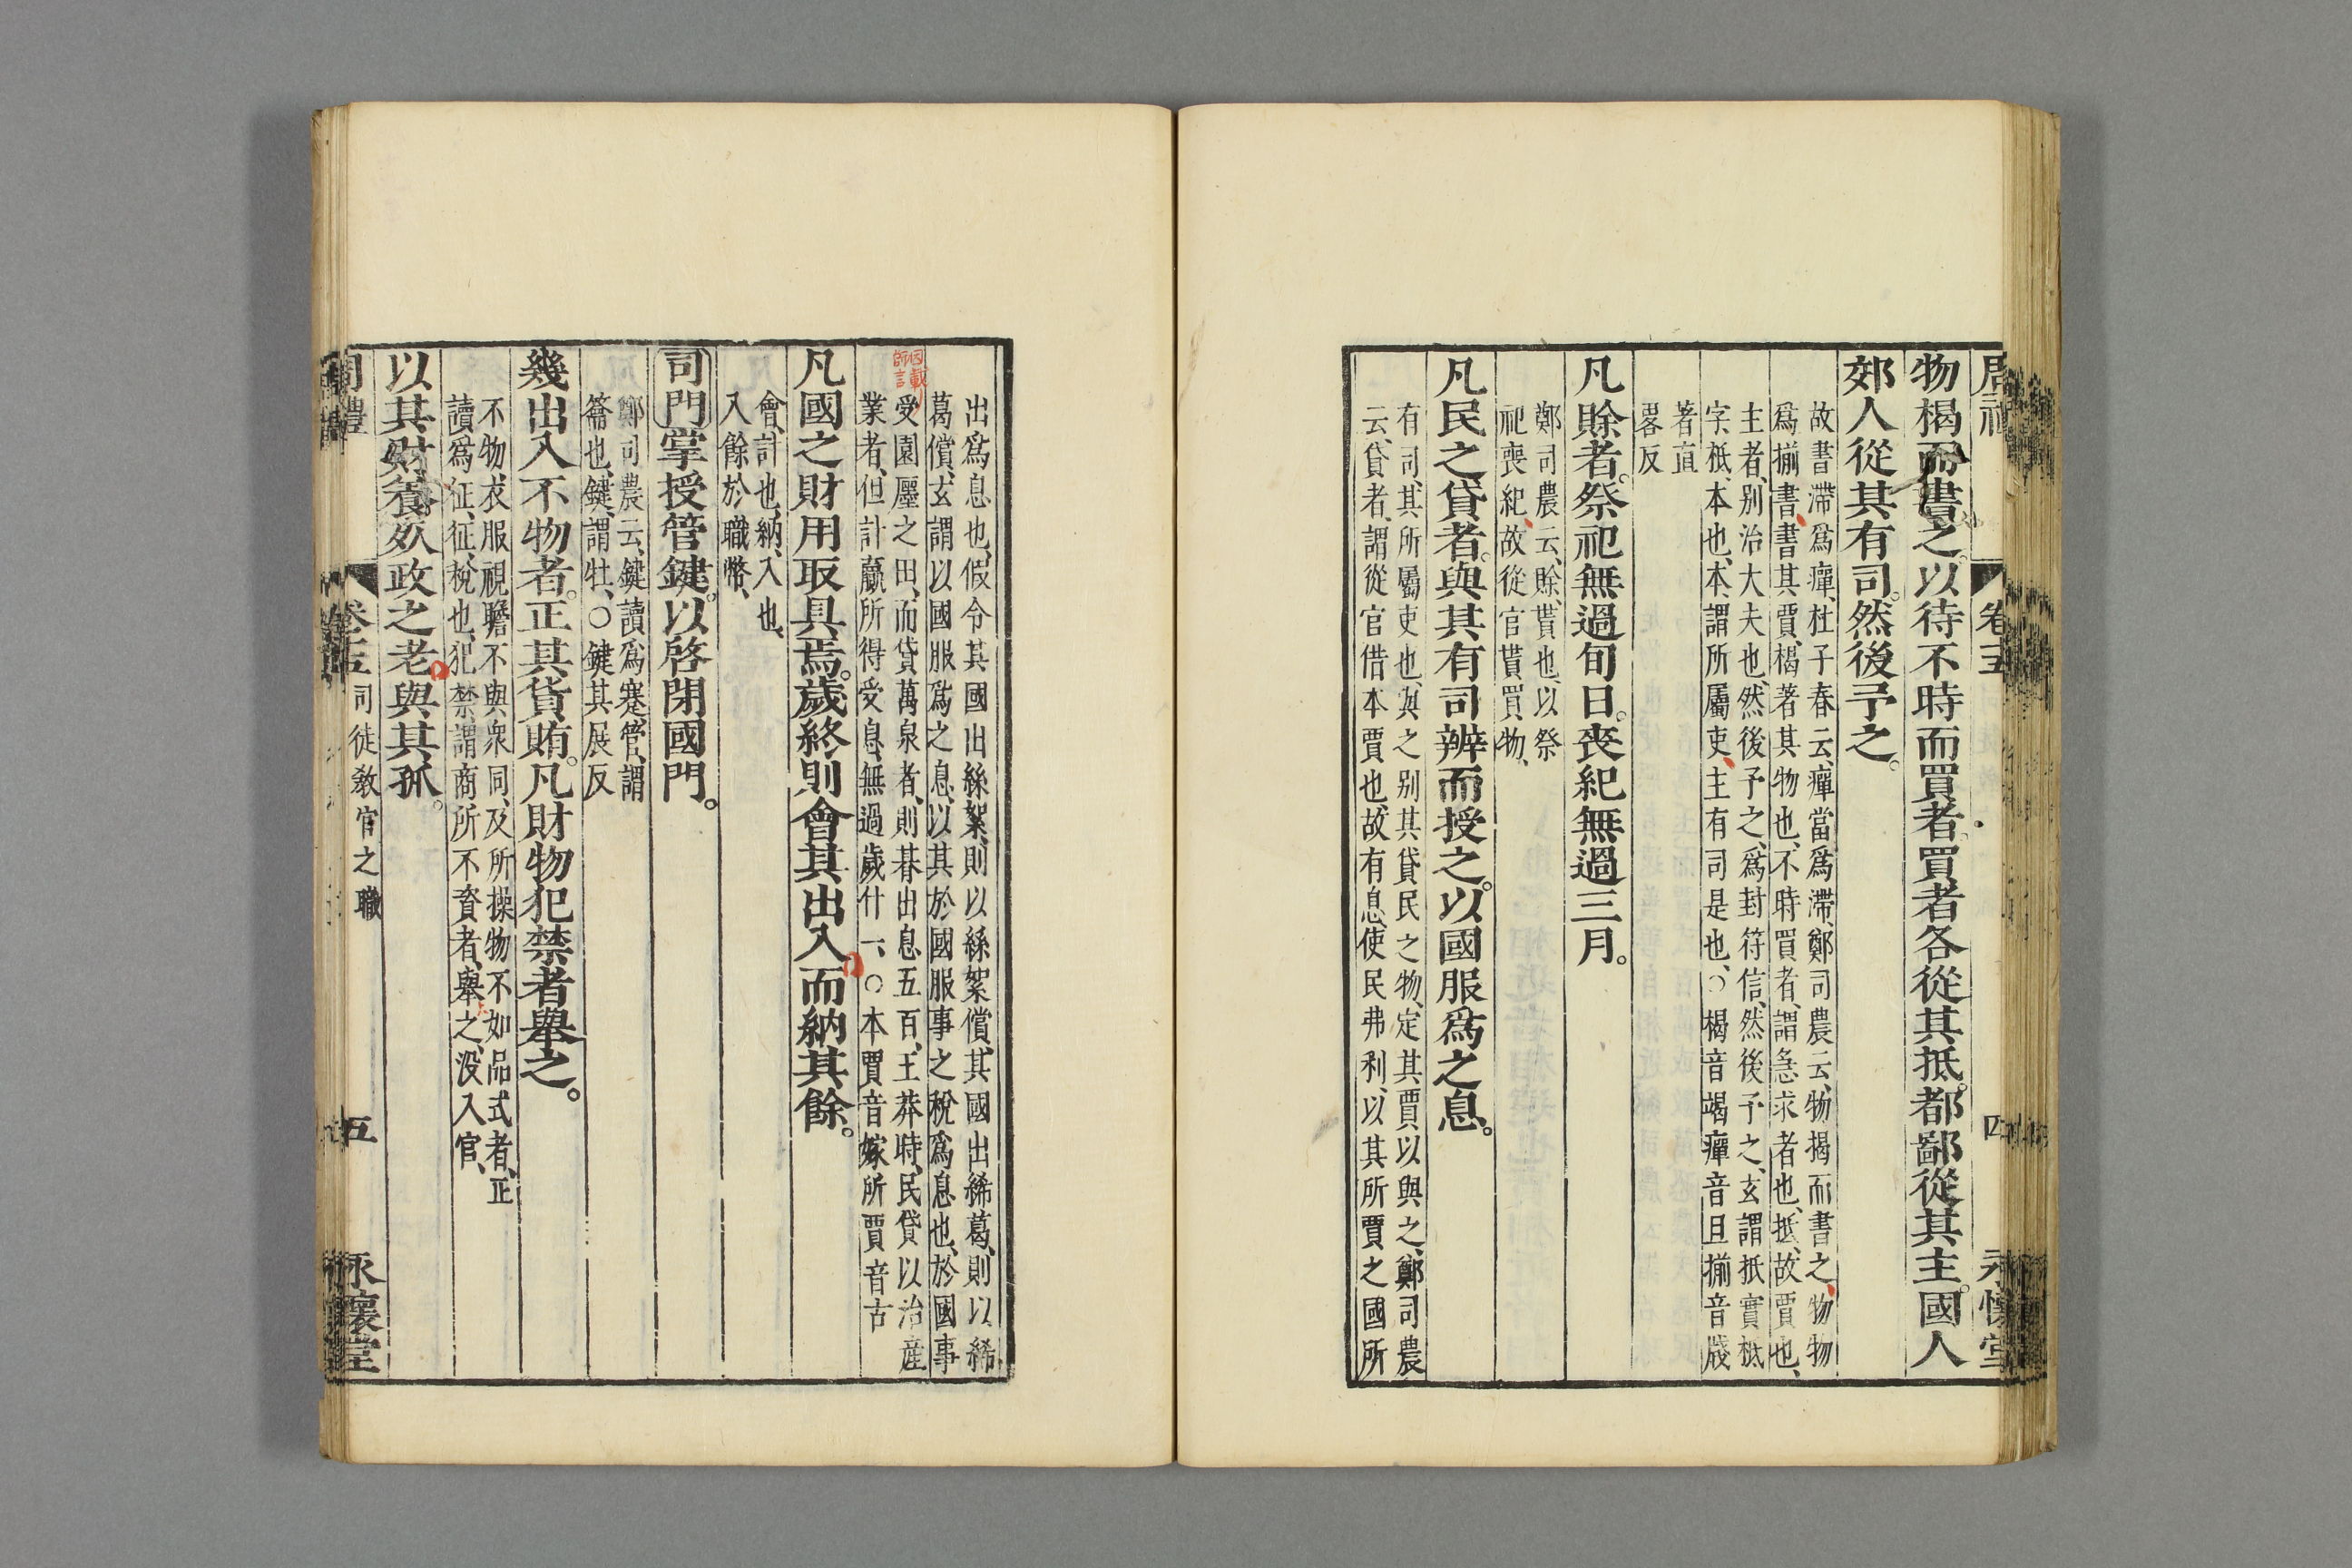 周禮
卷五
四
永懷堂
物楬而書之。以待不時而買者。買者各從其抵。都鄙從其主。國人
郊人從其有司。然後予之。
故書滯爲癉、杜子春云、癉當爲滯、鄭司農云、物揭而書之、物物
爲揃書、書其賈、楬著其物也、不時買者、謂急求者也、抵、故賈也、
主者、別治大夫也、然後予之、爲封符信、然後予之、玄謂抵實柢
字、柢、本也、本、謂所屬吏、主有司是也、○楬音竭癉音旦揃音牋
著直
畧反
凡賒者。祭祀無過旬日。喪紀無過三月。
鄭司農云、賒、貰也、以祭
祀喪紀故從官貰買物、
凡民之貸者。與其有司辨而授之。以國服爲之息。
有司、其所屬吏也、與之别其貸民之物、定其賈以與之、鄭司農
云、貸者、謂從官借本賈也、故有息、使民弗利、以其所賈之國所
出爲息也、假令其國出絲絮、則以絲絮償、其國出絺葛、則以絺
葛償、玄謂以國服爲之息、以其於國服事之稅爲息也、於國事
受園廛之田、而貸萬泉者、則朞出息五百、王莽時、民貸以治產
業者、但計贏所得受息、無過歲什一、○本賈音嫁所賈音古
凡國之財用取具焉。歲終則會其出入而納其餘。
會、計也、納、入也、
入餘於職幣、
司門掌授管鍵。以啓閉國門。
鄭司農云、鍵讀爲蹇、管、謂
籥也、鍵、謂牡、○鍵其展反
幾出入不物者。正其貨賄。凡財物犯禁者舉之。
不物衣服視瞻不與衆同、及所操物不如品式者、正
讀爲征、征、稅也、犯禁謂商所不資者、舉之、沒入官、
以其財養死政之老與其孤。
周禮
卷五
司徒敎官之職
五
永懷堂